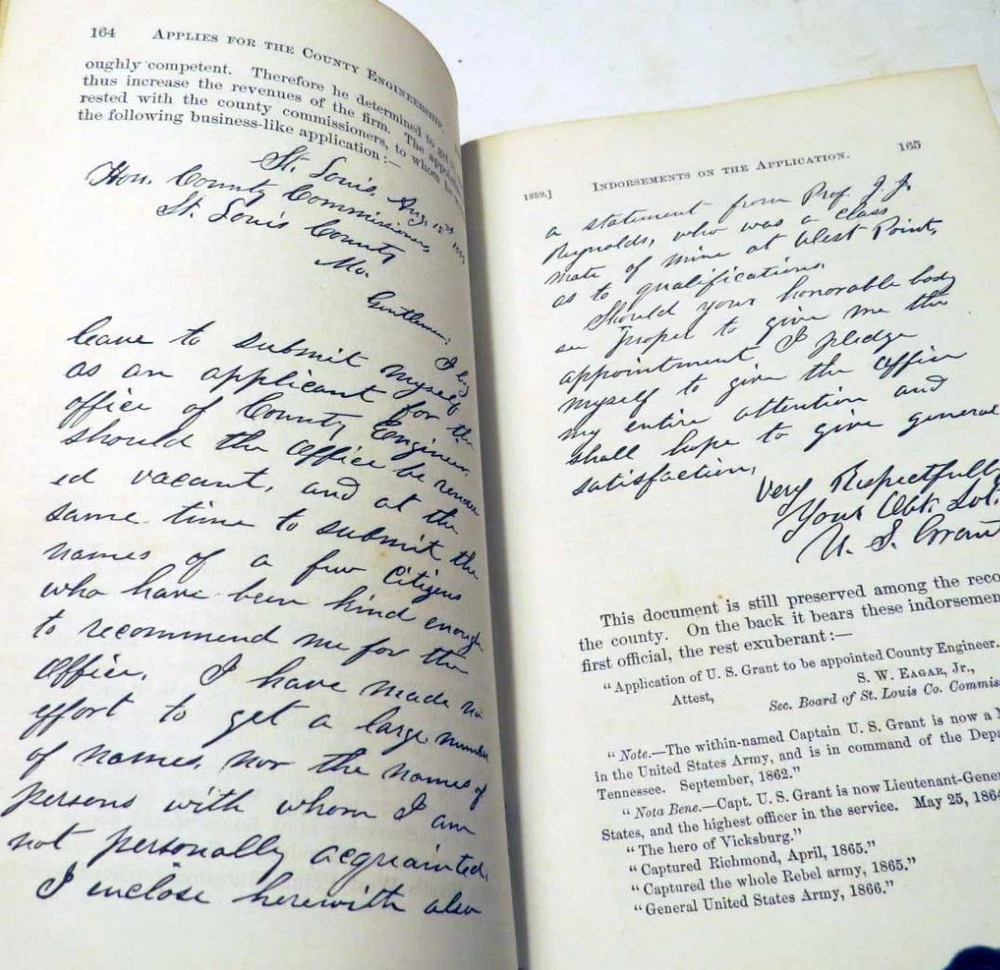 164 APPLIES FOR THE COUNTY ENGINEERSHIP.
oughly competent. Therefore he determined to get
thus increase the revenues of the firm. The
rested with the county commissioners, to whom he
the following business-like application:—
St. Louis, Aug. 15th
Hon. County Commissioners,
St. Louis County
Mo.
Gentlemen; I beg
leave to submit myself
as an applicant for the
office of County Engineer,
should the office be render
ed vacant, and at the
same time to submit the
names of a few citizens
who have been kind enough
to recommend me for the
office. I have made no
effort to get a large number
of names, nor the names of
persons with whom I am
not personally acquainted.
I enclose herewith also
1859.] INDORSEMENTS ON THE APPLICATION. 165
a statement from Prof. J. J.
Reynolds, who was a class
mate of mine at West Point,
as to qualifications.
Should your honorable body
see proper to give me the
appointment, I pledge
myself to give the office
my entire attention and
shall hope to give general
satisfaction,
Very Respectfully
Your Obt. Svt.
U. S. Grant
This document is still preserved among the reco
the county. On the back it bears these indorsemen
first official, the rest exuberant:—
"Application of U. S. Grant to be appointed County Engineer.
S. W. EAGAR, Jr.,
Attest, Sec. Board of St. Louis Co. Commis
"Note.—The within-named Captain U. S. Grant is now a
in the United States Army, and is in command of the Depa
Tennessee. September, 1862."
"Nota Bene.—Capt. U. S. Grant is now Lieutenant-Gener
States, and the highest officer in the service. May 25, 1864
"The hero of Vicksburg."
"Captured Richmond, April, 1865."
"Captured the whole Rebel army, 1865."
"General United States Army, 1866."